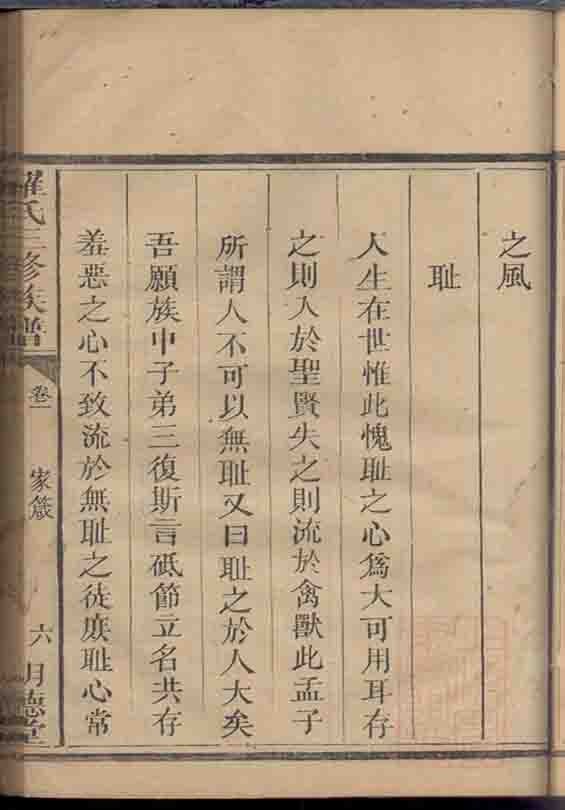 之風
恥
人生在世惟此愧耻之心爲大可用耳存
之則入於聖賢失之則流於禽獸此孟子
所謂人不可以無耻又曰耻之於人大矣
吾願族中子弟三復斯言砥節立名共存
羞惡之心不致流於無耻之徒庶耻心常
羅氏三修族譜
卷一
家箴
六
明德堂